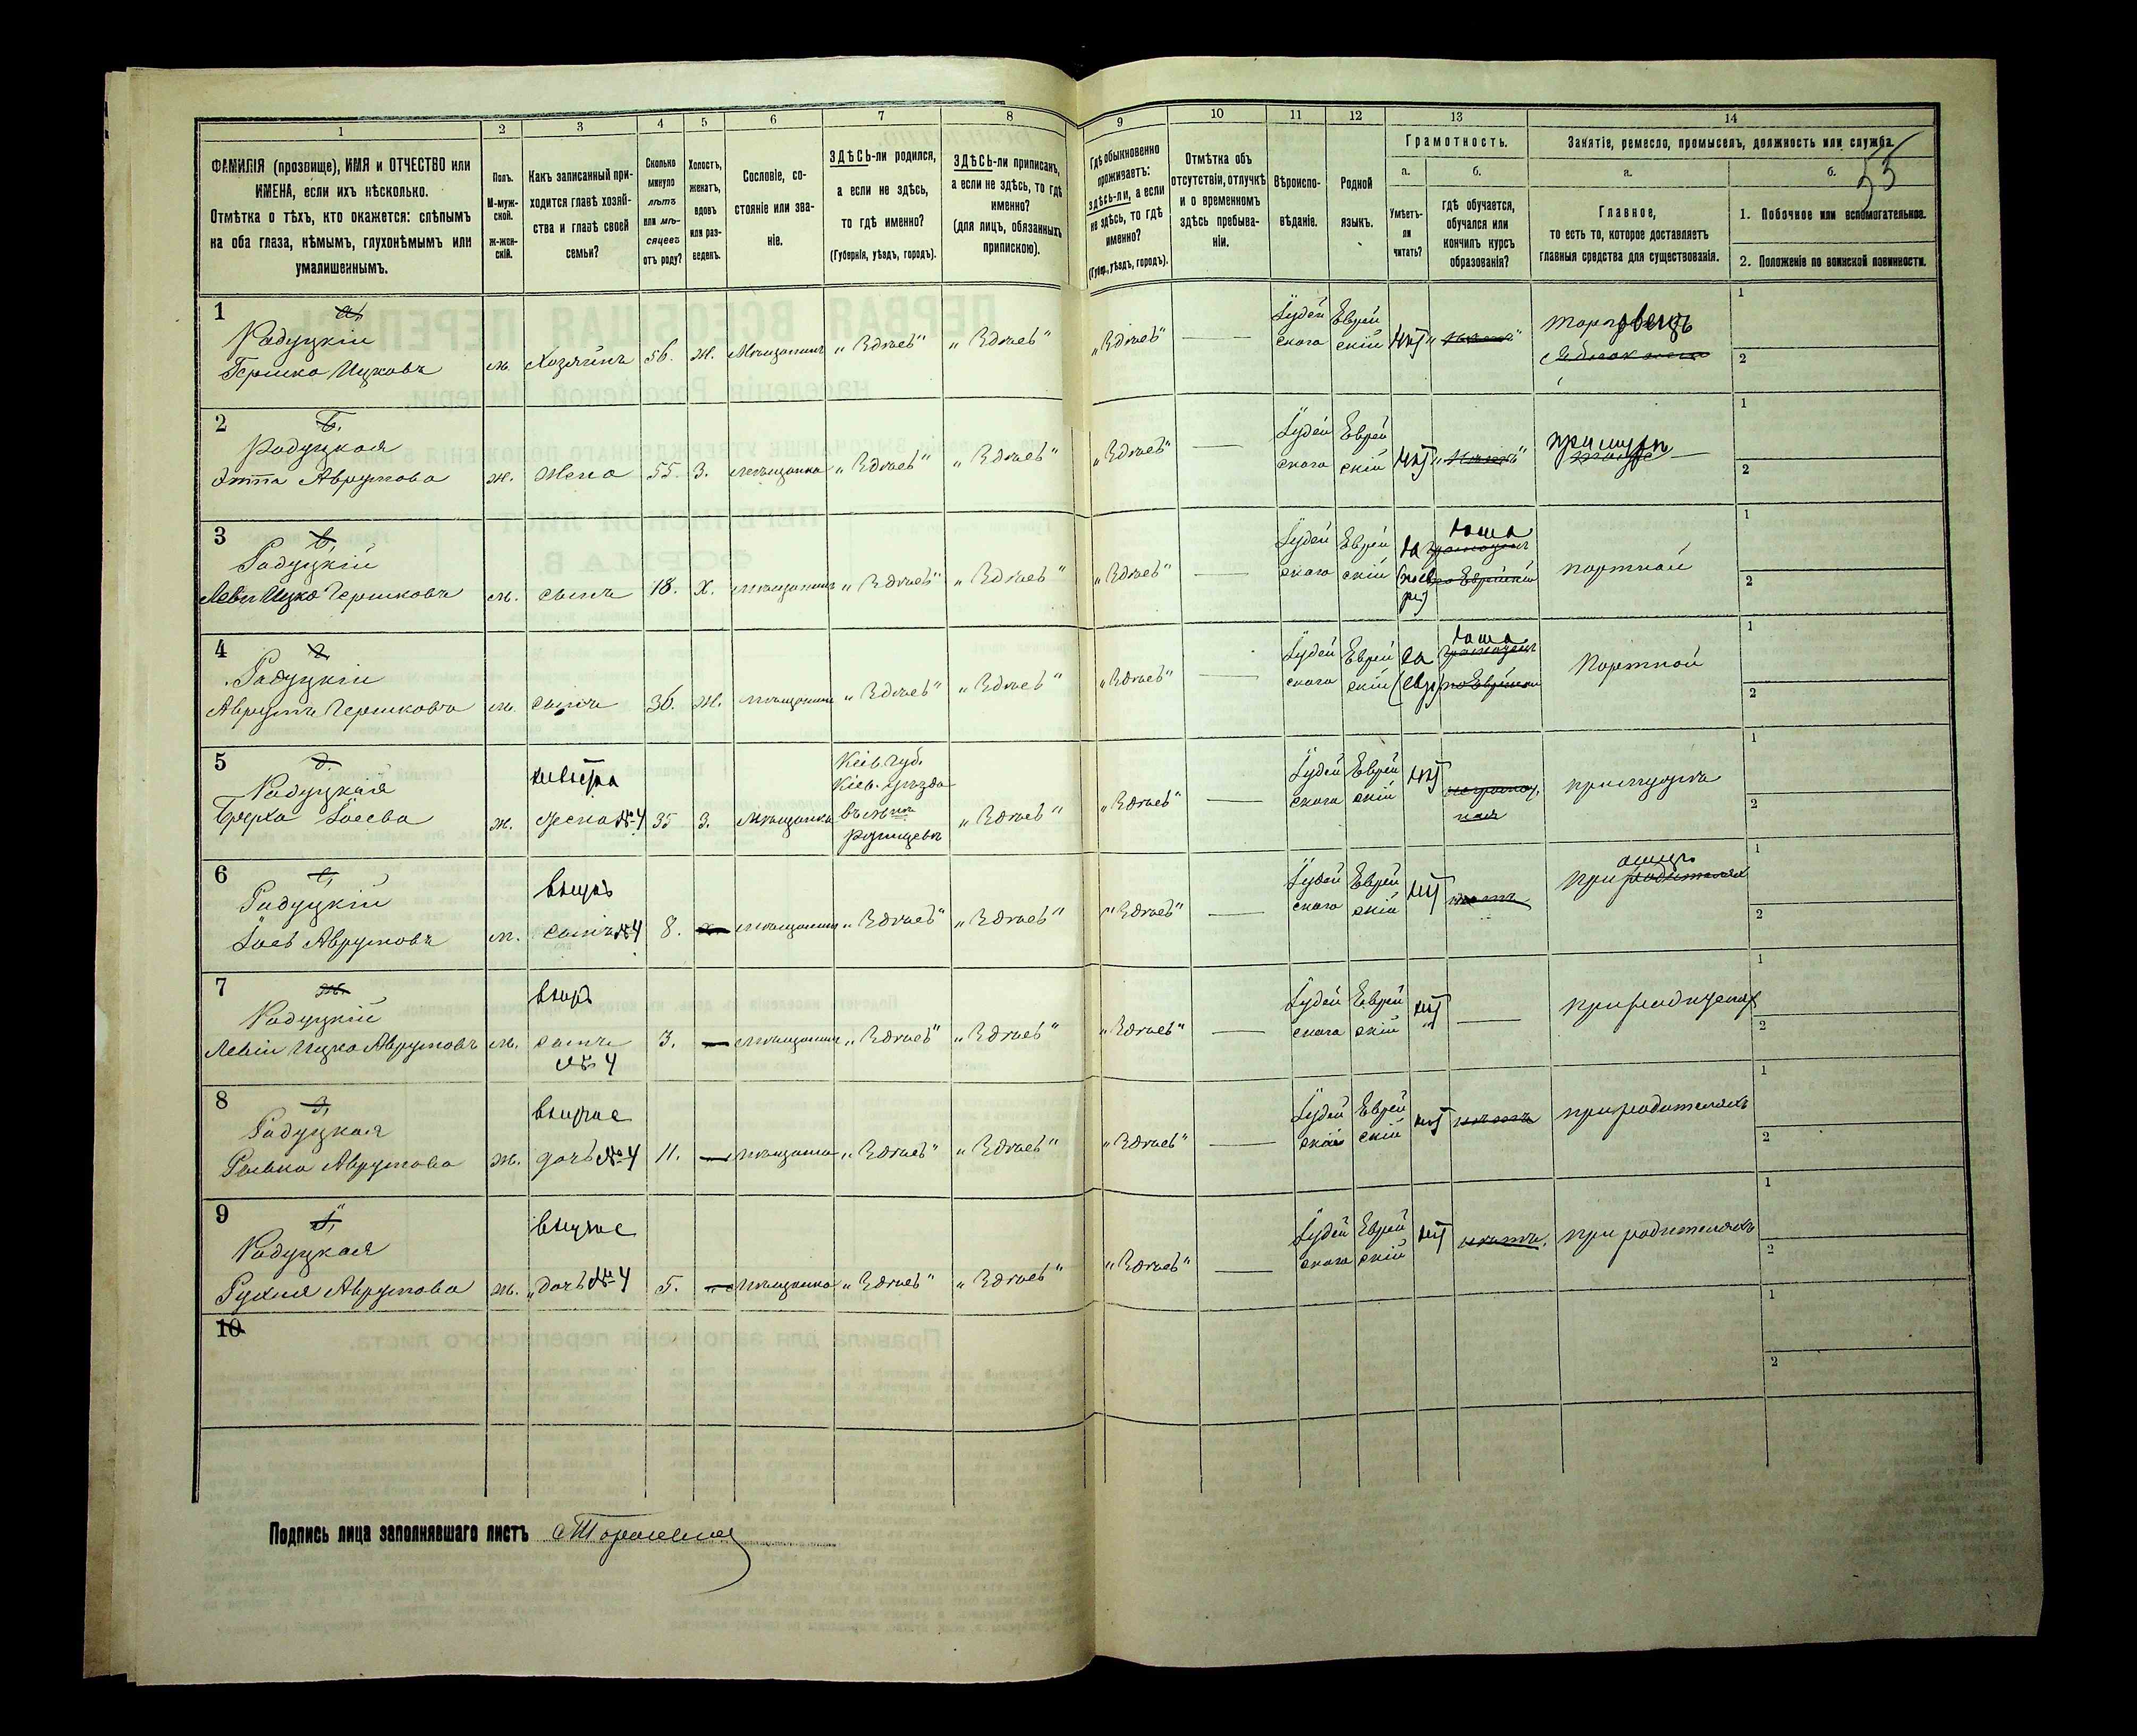 1 2 3 4 5 6 7 8 9 10 11 12 13 14
ФАМИЛІЯ (прозвище), ИМЯ и ОТЧЕСТВО или
ИМЕНА, если ихъ нѣсколько.
Отмѣтка о тѣхъ, кто окажется: слѣпымъ
на оба глаза, нѣмымъ, глухонѣмымъ или
умалишеннымъ.
Полъ.
М-муж-
ской.
ж-жен-
скій.
Какъ записанный при-
ходится главѣ хозяй-
ства и главѣ своей
семьи?
Сколько
минуло
лѣтъ
или мѣ-
сяцевъ
отъ роду?
Холостъ,
женатъ,
вдовъ
или раз-
веденъ.
Сословіе, со-
стояніе или зва-
ніе.
ЗДѢСЬ-ли родился,
а если не здѣсь,
то гдѣ именно?
(Губернія, уѣздъ, городъ).
ЗДѢСЬ-ли приписанъ,
а если не здѣсь, то гдѣ
именно?
(для лицъ, обязанныхъ
припискою).
Гдѣ обыкновенно
проживаетъ:
здѣсь-ли, а если
не здѣсь, то гдѣ
именно?
(Губер., уѣздъ, городъ).
Отмѣтка объ
отсутствіи, отлучкѣ
и о временномъ
здѣсь пребыва-
ніи.
Вѣроиспо-
вѣданіе.
Родной
языкъ.
Грамотность.
а.
Умѣетъ-
ли
читать?
б.
гдѣ обучается,
обучался или
кончилъ курсъ
образованія?
Занятіе, ремесло, промыселъ, должность или служба.
55
а.
Главное,
то есть то, которое доставляетъ
главныя средства для существованія.
б.
1. Побочное или вспомогательное.
2. Положеніе по воинской повинности.
1 а.
Радуцкій
Гершко Ицковъ м. Хозяинъ 56. ж. Мѣщанинъ „Здѣсь“ „Здѣсь“ „Здѣсь“ — Іудей
ского Еврей
скій нѣт торговецъ
1
2
2 б.
Радуцкая
Этта Аврумова ж. жена 55. З. мѣщанка „Здѣсь“ „Здѣсь“ „Здѣсь“ — Іудей
ского Еврей
скій нѣт при мужѣ
1
2
3 в.
Радуцкій
Левъ Ицко Гершковъ м. сынъ 18. Х. мѣщанинъ „Здѣсь“ „Здѣсь“ „Здѣсь“ — Іудей
ского Еврей
скій да дома портной
1
2
4 г.
Радуцкій
Аврумъ Гершковъ м. сынъ 36. Ж. мѣщанинъ „Здѣсь“ „Здѣсь“ „Здѣсь“ — Іудей
ского Еврей
скій да (евр) дома Портной
1
2
5 д.
Радуцкая
Іоева ж. невѣстка
жена № 4 35 З. мѣщанка Кіев. губ.
Кіев. уѣзда „Здѣсь“ „Здѣсь“ — Іудей
ского Еврей
скій нѣт при мужѣ
1
2
6 е.
Радуцкій
Іоев Аврумовъ м. внукъ
сынъ № 4 8. мѣщанинъ „Здѣсь“ „Здѣсь“ „Здѣсь“ — Іудей
ского Еврей
скій нѣт нѣтъ при отцѣ
родителях
1
2
7 ж.
Радуцкій
Левій Ицко Аврумовъ м. внукъ
сынъ
№ 4 3. — мѣщанинъ „Здѣсь“ „Здѣсь“ „Здѣсь“ — Іудей
ского Еврей
скій нѣт — при родителях
1
2
8 з.
Радуцкая
Аврумова ж. внучка
дочь № 4 11. — мѣщанка „Здѣсь“ „Здѣсь“ „Здѣсь“ — Іудей
ского Еврей
скій нѣт нѣтъ при родителяхъ
1
2
9 і.
Радуцкая
Рухля Аврумова ж. внучка
дочь № 4 5. — мѣщанка „Здѣсь“ „Здѣсь“ „Здѣсь“ — Іудей
ского Еврей
скій нѣт нѣтъ. при родителяхъ
1
2
10
1
2
Подпись лица заполнявшаго листъ